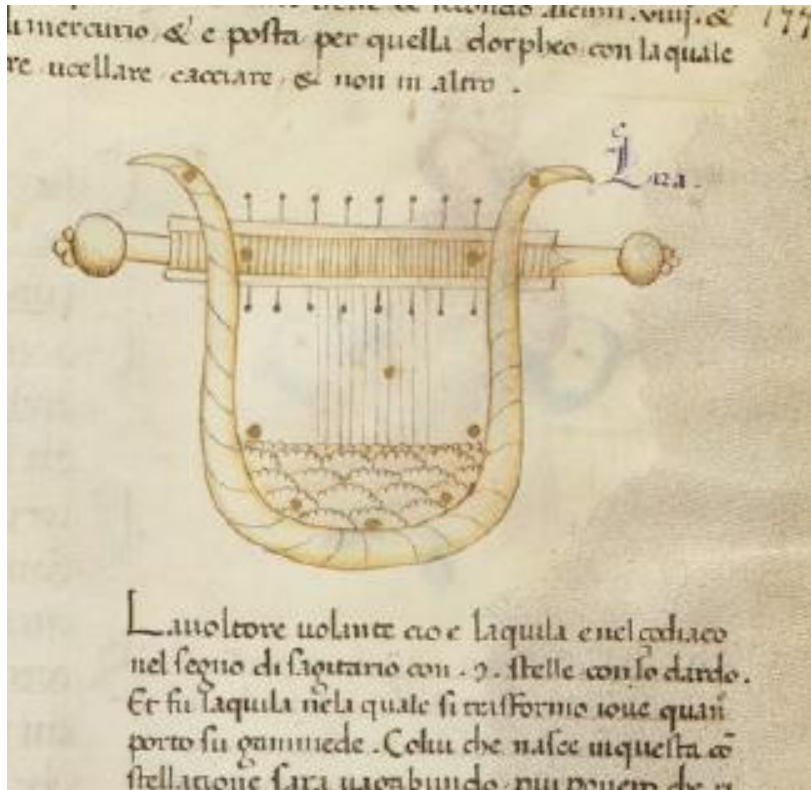 di mercurio & e posta per quella dorpheo con laquale
re ucellare cacciare & non in altro .
Lira .
Lauoltore uolante cio e laquila e nel zodiaco
nel segno di sagitario con . 9 . stelle con lo dardo .
Et fu laquila nela quale si trasformo ioue quan
porto su ganimede . Colui che nasce in questa co
stellatione sara uagabundo